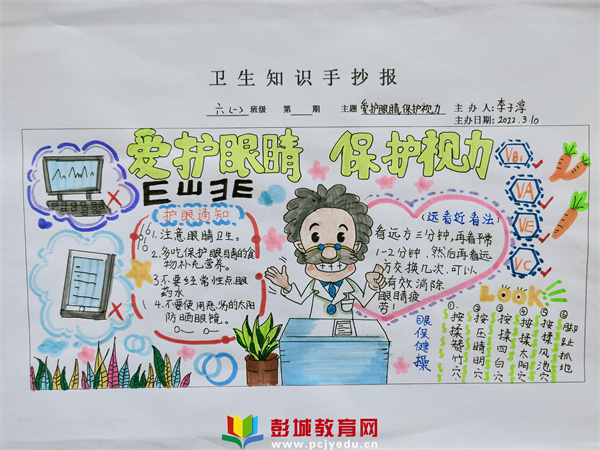 卫生知识手抄报
六(一)班级 第 期 主题 爱护眼睛,保护视力 主办人:李子淳
主办日期:2022.3.10
爱护眼睛 保护视力
E
护眼通知
1.注意眼睛卫生。
2.多吃保护眼睛的食
物补充营养。
3.不要经常性点眼
药水
4.不要使用劣的太阳
防晒眼镜。
(远看近看法)
看远方三分钟,再看手掌
1-2分钟,然后再看远
方交换几次,可以
有效消除
眼睛疲
劳!
VB1
VA
VE
VC
LOOK
眼保健操
①按揉攒竹穴
②按压睛明穴
③按揉四白穴
④按揉太阳穴
⑤按揉风池穴
⑥脚趾抓地
彭城教育网
www.pcjyedu.cn